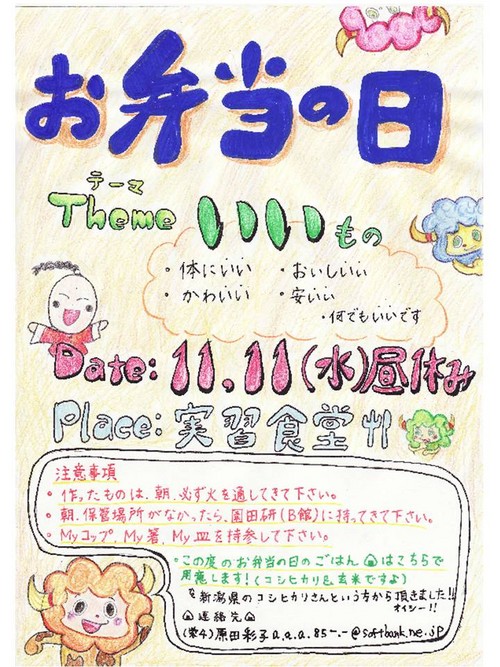 お弁当の日
テーマ
Theme いいもの
・体にいい ・おいしいい
・かわいい ・安いい
・何でもいいです
Date: 11.11(水)昼休み
Place: 実習食堂
注意事項
・作ったものは、朝、必ず火を通してきて下さい。
・朝、保管場所がなかったら、園田研(B館)に持ってきて下さい。
・Myコップ、My箸、My皿を持参して下さい。
・この度のお弁当の日のごはんはこちらで
用意します!(コシヒカリ&玄米ですよ)
新潟県のコシヒカリさんという方から頂きました!!
オイシー!!
連絡先
(栄4)原田彩子 a.a.a.85-.-@softbank.ne.jp